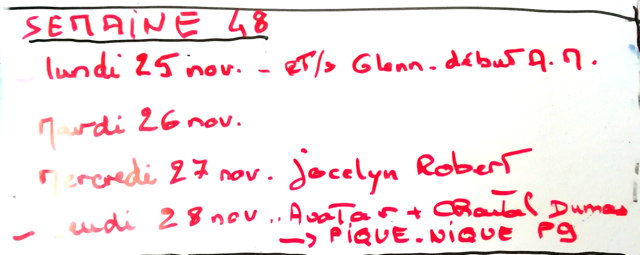 SEMAINE 48
lundi 25 nov. - Glenn. début A.M.
Mardi 26 nov.
Mercredi 27 nov. Jocelyn Robert
eudi 28 nov.. Avatar + Chantal Dumas
—> PIQUE-NIQUE P9